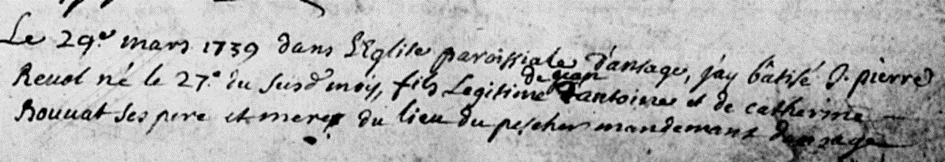 Le 29e. mars 1739 dans L'Eglise paroissiale d'ansage, j'ay bâtisé J. pierre
Revol né le 27e. du susd. mois, fils Legitime de jean antoine et de catherine
Bouvat ses pere et mere du lieu du pescher mandemant d'ansage